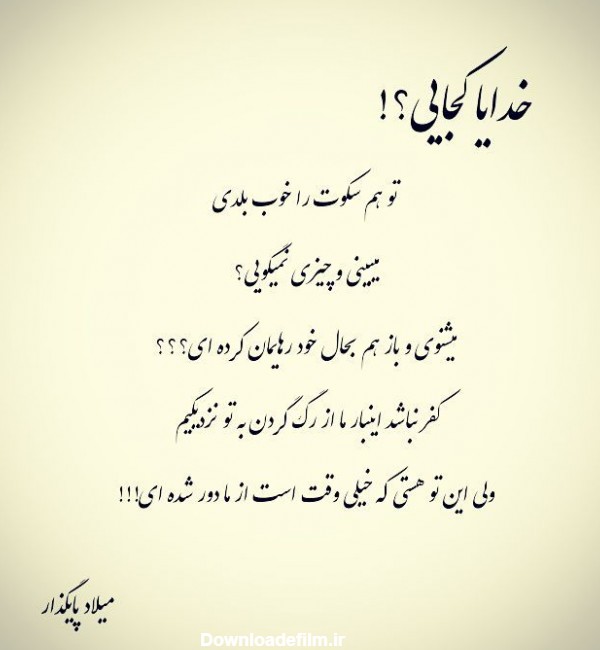 خدایا کجایی؟!
تو هم سکوت را خوب بلدی
میبینی و چیزی نمیگویی؟
میشنوی و باز هم بحال خود رهایمان کرده ای؟؟؟
کفر نباشد اینبار ما از رگ گردن به تو نزدیکیم
ولی این تو هستی که خیلی وقت است از ما دور شده ای!!!
میلاد پایگذار
Downloadefilm.ir